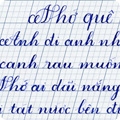 Nhớ quê
Anh đi anh nh
canh rau muốn
Nhớ ai dãi nắng
tát nước bên đư